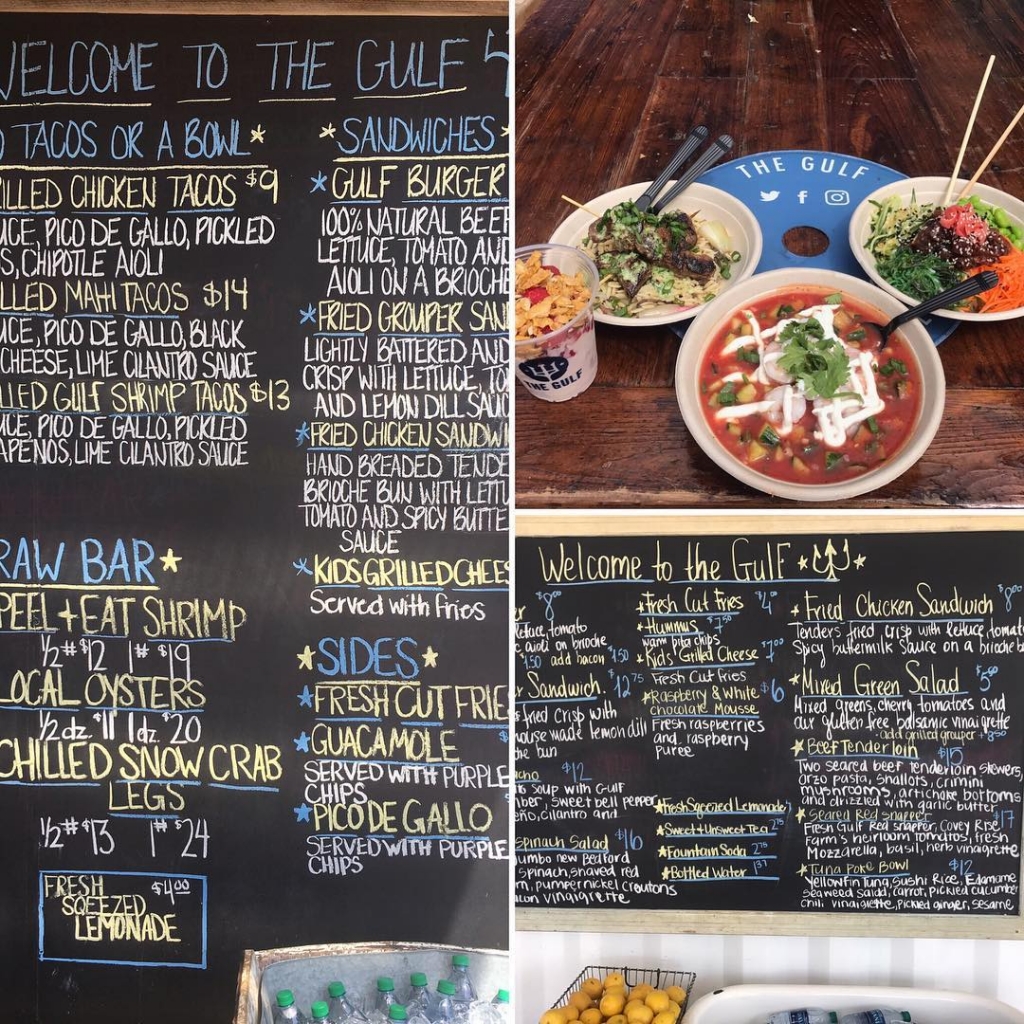 WELCOME TO THE GULF
TACOS OR A BOWL
CHICKEN TACOS $9
PICO DE GALLO, PICKLED
CHIPOTLE AIOLI
MAHI TACOS $14
PICO DE GALLO, BLACK
CHEESE, LIME CILANTRO SAUCE
GULF SHRIMP TACOS $13
PICO DE GALLO, PICKLED
LIME CILANTRO SAUCE
RAW BAR
PEEL + EAT SHRIMP
½# $12 1# $19
LOCAL OYSTERS
½ dz. $11 1dz. $20
CHILLED SNOW CRAB
LEGS
½# $13 1# $24
FRESH $4.00
SQEEZED
LEMONADE
SANDWICHES
GULF BURGER
100% NATURAL BEEF
LETTUCE, TOMATO AND
AIOLI ON A BRIOCHE
FRIED GROUPER SAN
LIGHTLY BATTERED AND
CRISP WITH LETTUCE, TO
AND LEMON DILL SAUC
FRIED CHICKEN SANDWI
HAND BREADED TENDE
BRIOCHE BUN WITH LETTU
TOMATO AND SPICY BUTTE
SAUCE
KIDS GRILLED CHEES
Served with fries
SIDES
FRESH CUT FRIE
GUACAMOLE
SERVED WITH PURPLE
CHIPS
PICO DE GALLO
SERVED WITH PURPLE
CHIPS
THE GULF
THE GULF
Welcome to the Gulf
$8
lettuce, tomato
aioli on brioche
$1.50 add bacon $1.50
Sandwich. $12.75
fried crisp with
house made lemon dill
the bun
$12
soup with Gulf
sweet bell pepper
cilantro and
Spinach Salad $16
Jumbo new Bedford
spinach, shaved red
pumpernickel croutons
vinaigrette
Fresh Cut Fries $4
Hummus $7.50
warm pita chips
Kids Grilled Cheese
Fresh Cut Fries
Raspberry & White $6
chocolate Mousse
Fresh raspberries
and raspberry
puree
Fresh Sqeezed Lemonade
Sweet + Unsweet Tea
Fountain Soda
Bottled Water
Fried Chicken Sandwich $8
Tenders fried crisp with lettuce, tomato
Spicy buttermilk Sauce on a brioche b
Mixed Green Salad
Mixed greens, cherry tomatoes and
our gluten free, balsamic vinaigrette
add grilled grouper
Beef Tenderloin $15
Two seared beef tenderloin skewers,
orzo pasta, shallots, crimini
mushrooms, artichoke bottoms
and drizzled with garlic butter
Seared Red snapper $17
Fresh Gulf Red snapper, Covey Rise
Farm's heirloom tomatos, fresh
Mozzarella, basil, herb vinaigrette
Tuna Poke Bowl $12
Yellowfin Tuna, Sushi Rice, Edamame
seaweed salad, carrot, pickled cucumber
chili vinaigrette, pickled ginger, sesame